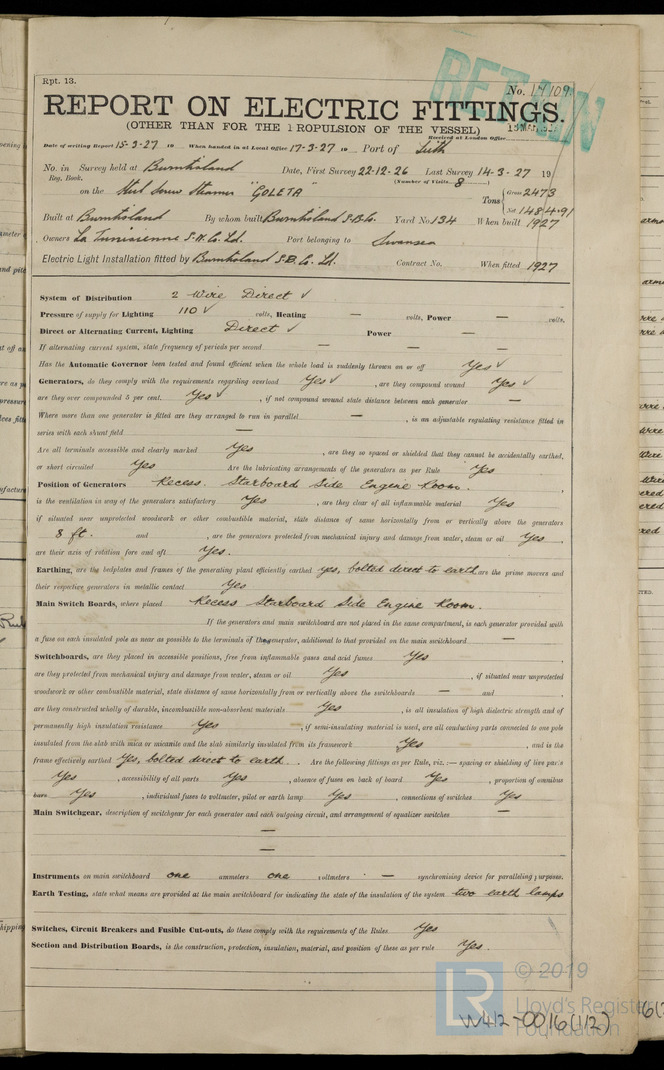 Rpt. 13.
RETAIN
No. 17109
REPORT ON ELECTRIC FITTINGS.
(OTHER THAN FOR THE PROPULSION OF THE VESSEL)
Received at London Office
Date of writing Report 15-3-27 19 When handed in at Local Office 17-3-27 19 Port of Leith
No. in Survey held at Burntisland Date, First Survey 22-12-26 Last Survey 14-3-27 19
Reg. Book. (Number of Visits 8)
on the Steel Screw Steamer "GOLETA" Tons Gross 2473
Net 1484.91
Built at Burntisland By whom built Burntisland S.B.Co. Yard No. 134 When built 1927
Owners La Tunisienne S.N.Co. Ld. Port belonging to Swansea
Electric Light Installation fitted by Burntisland S.B. Co. Ld. Contract No. When fitted 1927
System of Distribution 2 Wire Direct ✓
Pressure of supply for Lighting 110 ✓ volts, Heating — volts, Power — volts.
Direct or Alternating Current, Lighting Direct ✓ Power —
If alternating current system, state frequency of periods per second — — —
Has the Automatic Governor been tested and found efficient when the whole load is suddenly thrown on or off Yes ✓
Generators, do they comply with the requirements regarding overload Yes ✓, are they compound wound Yes ✓
are they over compounded 5 per cent. Yes ✓, if not compound wound state distance between each generator —
Where more than one generator is fitted are they arranged to run in parallel —, is an adjustable regulating resistance fitted in
series with each shunt field —
Are all terminals accessible and clearly marked Yes, are they so spaced or shielded that they cannot be accidentally earthed,
or short circuited Yes Are the lubricating arrangements of the generators as per Rule Yes
Position of Generators Recess. Starboard Side Engine Room.
is the ventilation in way of the generators satisfactory Yes, are they clear of all inflammable material Yes
if situated near unprotected woodwork or other combustible material, state distance of same horizontally from or vertically above the generators
8 ft. and , are the generators protected from mechanical injury and damage from water, steam or oil Yes,
are their axis of rotation fore and aft Yes.
Earthing, are the bedplates and frames of the generating plant efficiently earthed Yes, bolted direct to earth are the prime movers and
their respective generators in metallic contact Yes
Main Switch Boards, where placed Recess Starboard Side Engine Room.
If the generators and main switchboard are not placed in the same compartment, is each generator provided with
a fuse on each insulated pole as near as possible to the terminals of the generator, additional to that provided on the main switchboard —
Switchboards, are they placed in accessible positions, free from inflammable gases and acid fumes Yes,
are they protected from mechanical injury and damage from water, steam or oil Yes, if situated near unprotected
woodwork or other combustible material, state distance of same horizontally from or vertically above the switchboards — and ,
are they constructed wholly of durable, incombustible non-absorbent materials Yes, is all insulation of high dielectric strength and of
permanently high insulation resistance Yes, if semi-insulating material is used, are all conducting parts connected to one pole
insulated from the slab with mica or micanite and the slab similarly insulated from its framework Yes, and is the
frame effectively earthed Yes, bolted direct to earth. Are the following fittings as per Rule, viz.:— spacing or shielding of live parts
Yes, accessibility of all parts Yes, absence of fuses on back of board Yes, proportion of omnibus
bars Yes, individual fuses to voltmeter, pilot or earth lamp Yes, connections of switches Yes
Main Switchgear, description of switchgear for each generator and each outgoing circuit, and arrangement of equalizer switches —
—
—
Instruments on main switchboard one ammeters one voltmeters — synchronising device for paralleling purposes.
Earth Testing, state what means are provided at the main switchboard for indicating the state of the insulation of the system two earth lamps
Switches, Circuit Breakers and Fusible Cut-outs, do these comply with the requirements of the Rules Yes
Section and Distribution Boards, is the construction, protection, insulation, material, and position of these as per rule Yes.
LR
© 2019
Lloyd's Register
Foundation
W412-0016(1/2)